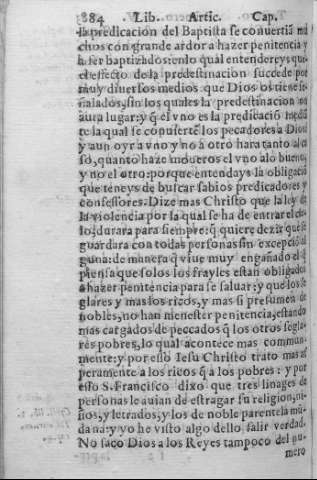 884 Lib. Artic. Cap.
la predicacion del Baptista se conuertiā mu
chos con grande ardor a hazer penitencia y
a ser baptizados: en lo qual entendereys que
el effecto de la predestinacion succede por
muy diuersos medios que Dios os tiene se
ñalados, sin los quales la predestinacion no
aura lugar: y q̃ el vno es la predicaciō
te la qual se conuierte los pecadores a Dios
y aun oyr a vno y no a otro hara tanto al ca
so, quanto haze moueros el vno a lo bueno,
y no el otro: porque entendays la obligaciō
que teneys de buscar sabios predicadores y
confessores. Dize mas Christo que la ley de
la violencia por la qual se ha de entrar el cie
lo, durara para siempre: q̃ quiere dezir que se
guardara con todas personas sin excepciō al
guna: de manera q̃ viue muy engañado el q̃
piensa que solos los frayles estan obligados
a hazer penitencia para se saluar: y que los se
glares y mas los ricos, y mas si presumen de
nobles, no han menester penitencia, estando
mas cargados de peccados q̃ los otros segla
res pobres, lo qual acontece mas commun-
mente: y por esso Iesu Christo trato mas as
peramente a los ricos q̃ a los pobres: y por
esso S. Francisco dixo que tres linages de
personas le auian de estragar su religion, ni-
ños, y letrados, y los de noble parentela mū
dana: y yo he visto algo dello salir verdad.
No saco Dios a los Reyes tampoco del nu-
mero